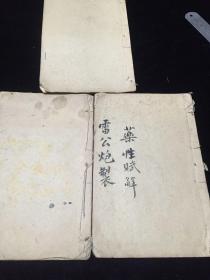 藥性賦解
雷公炮製